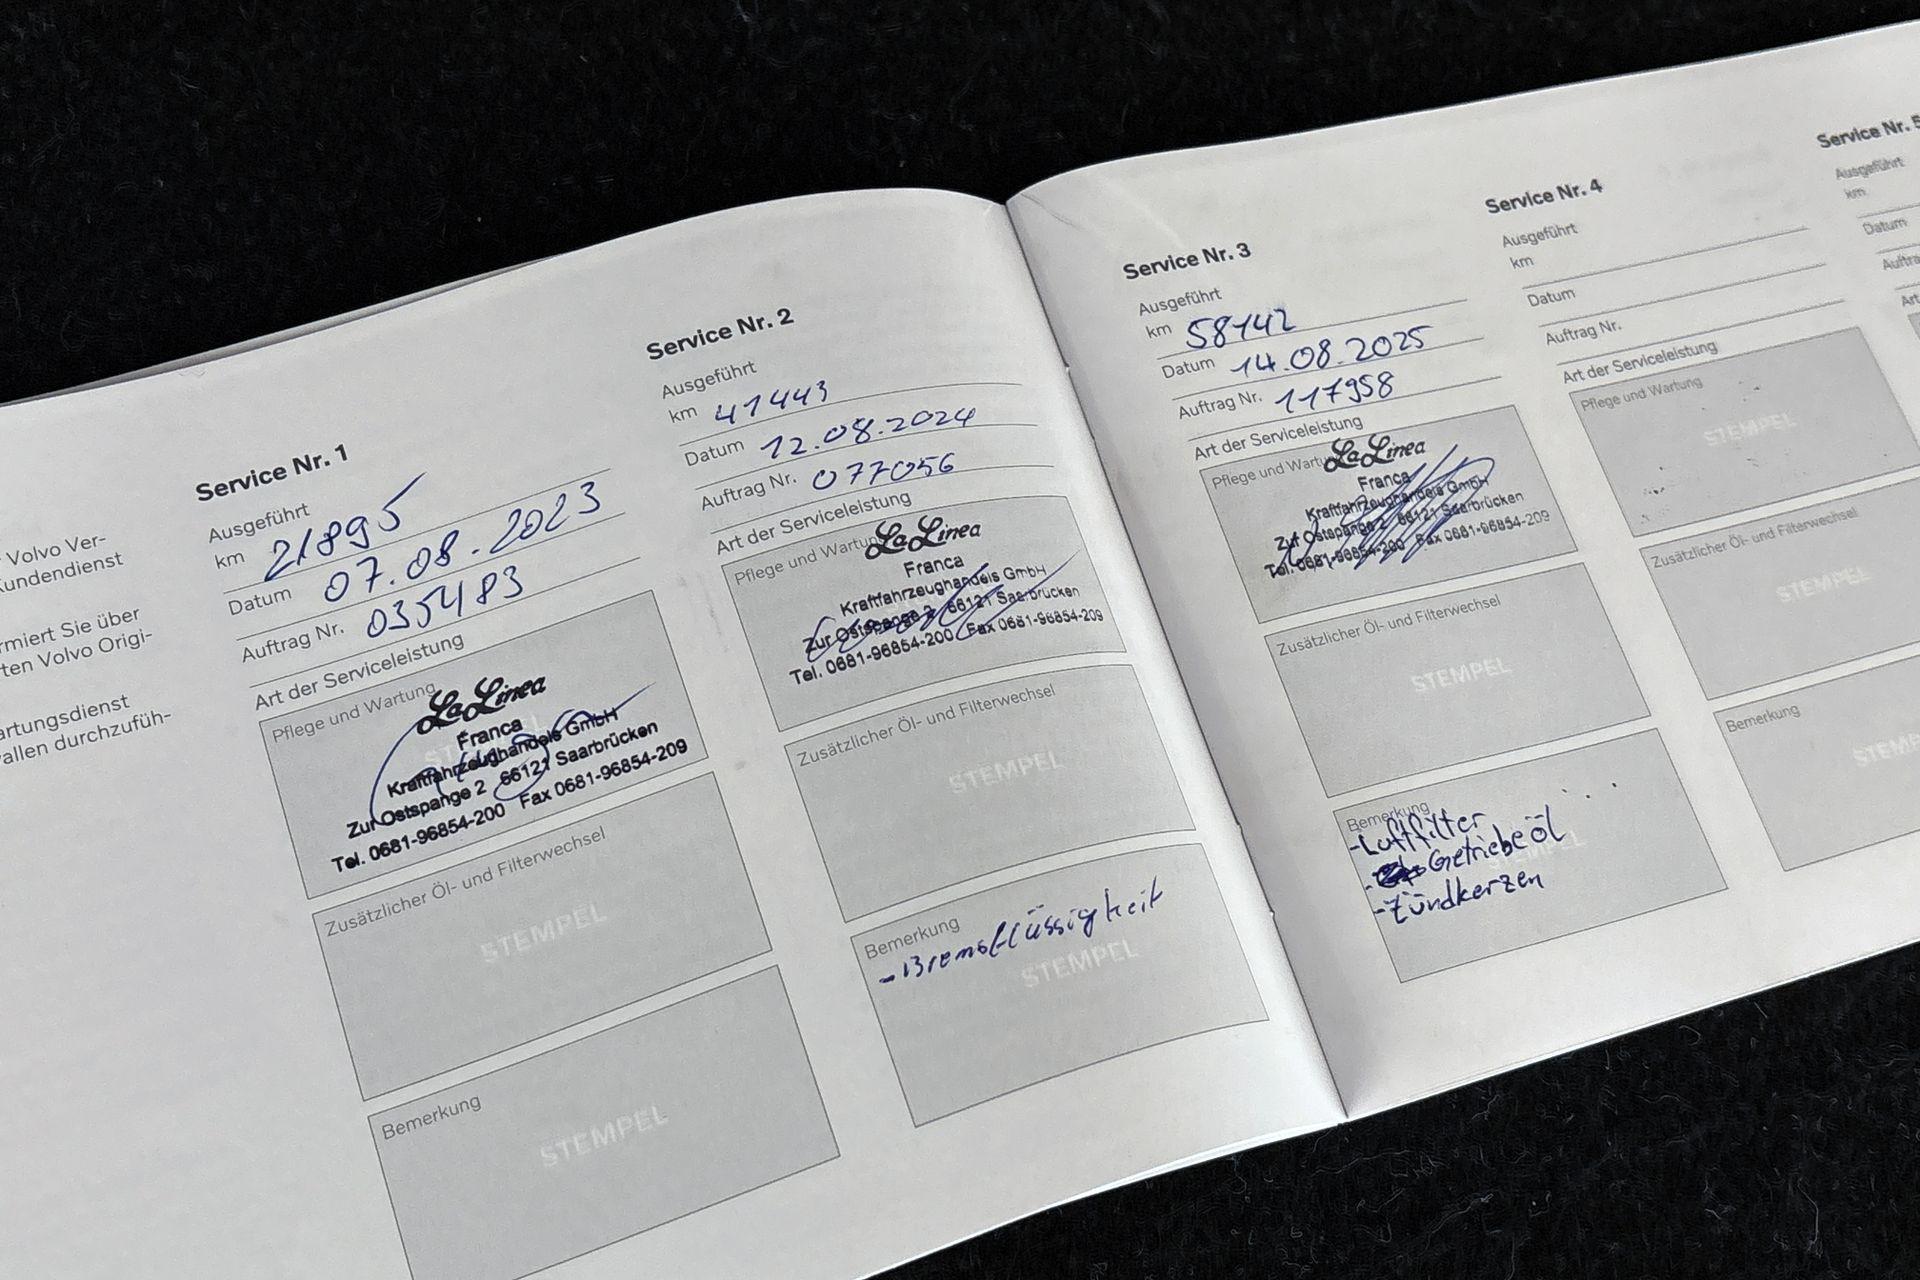 Volvo Ver-
Kundendienst
rmiert Sie über
ten Volvo Origi-
artungsdienst
allen durchzufüh-
Service Nr. 1
Ausgeführt
km 21895
Datum 07.08.2023
Auftrag Nr. 035483
Art der Serviceleistung
Pflege und Wartung
La Linea
Franca
Kraftfahrzeughandels GmbH
Zur Ostspange 2 66121 Saarbrücken
Tel. 0681-96854-200 Fax 0681-96854-209
Zusätzlicher Öl- und Filterwechsel
STEMPEL
Bemerkung
STEMPEL
Service Nr. 2
Ausgeführt
km 41443
Datum 12.08.2024
Auftrag Nr. 077056
Art der Serviceleistung
Pflege und Wartung
La Linea
Franca
Kraftfahrzeughandels GmbH
Zur Ostspange 2 66121 Saarbrücken
Tel. 0681-96854-200 Fax 0681-96854-209
Zusätzlicher Öl- und Filterwechsel
STEMPEL
Bemerkung
- Bremsflüssigkeit
STEMPEL
Service Nr. 3
Ausgeführt
km 58142
Datum 14.08.2025
Auftrag Nr. 117958
Art der Serviceleistung
Pflege und Wartung
La Linea
Franca
Kraftfahrzeughandels GmbH
Zur Ostspange 2 66121 Saarbrücken
Tel. 0681-96854-200 Fax 0681-96854-209
Zusätzlicher Öl- und Filterwechsel
STEMPEL
Bemerkung
- Luftfilter
- Getriebeöl
- Zündkerzen
STEMPEL
Service Nr. 4
Ausgeführt
km
Datum
Auftrag Nr.
Art der Serviceleistung
Pflege und Wartung
STEMPEL
Zusätzlicher Öl- und Filterwechsel
STEMPEL
Bemerkung
STEMPEL
Service Nr. 5
Ausgeführt
km
Datum
Auftra
Art